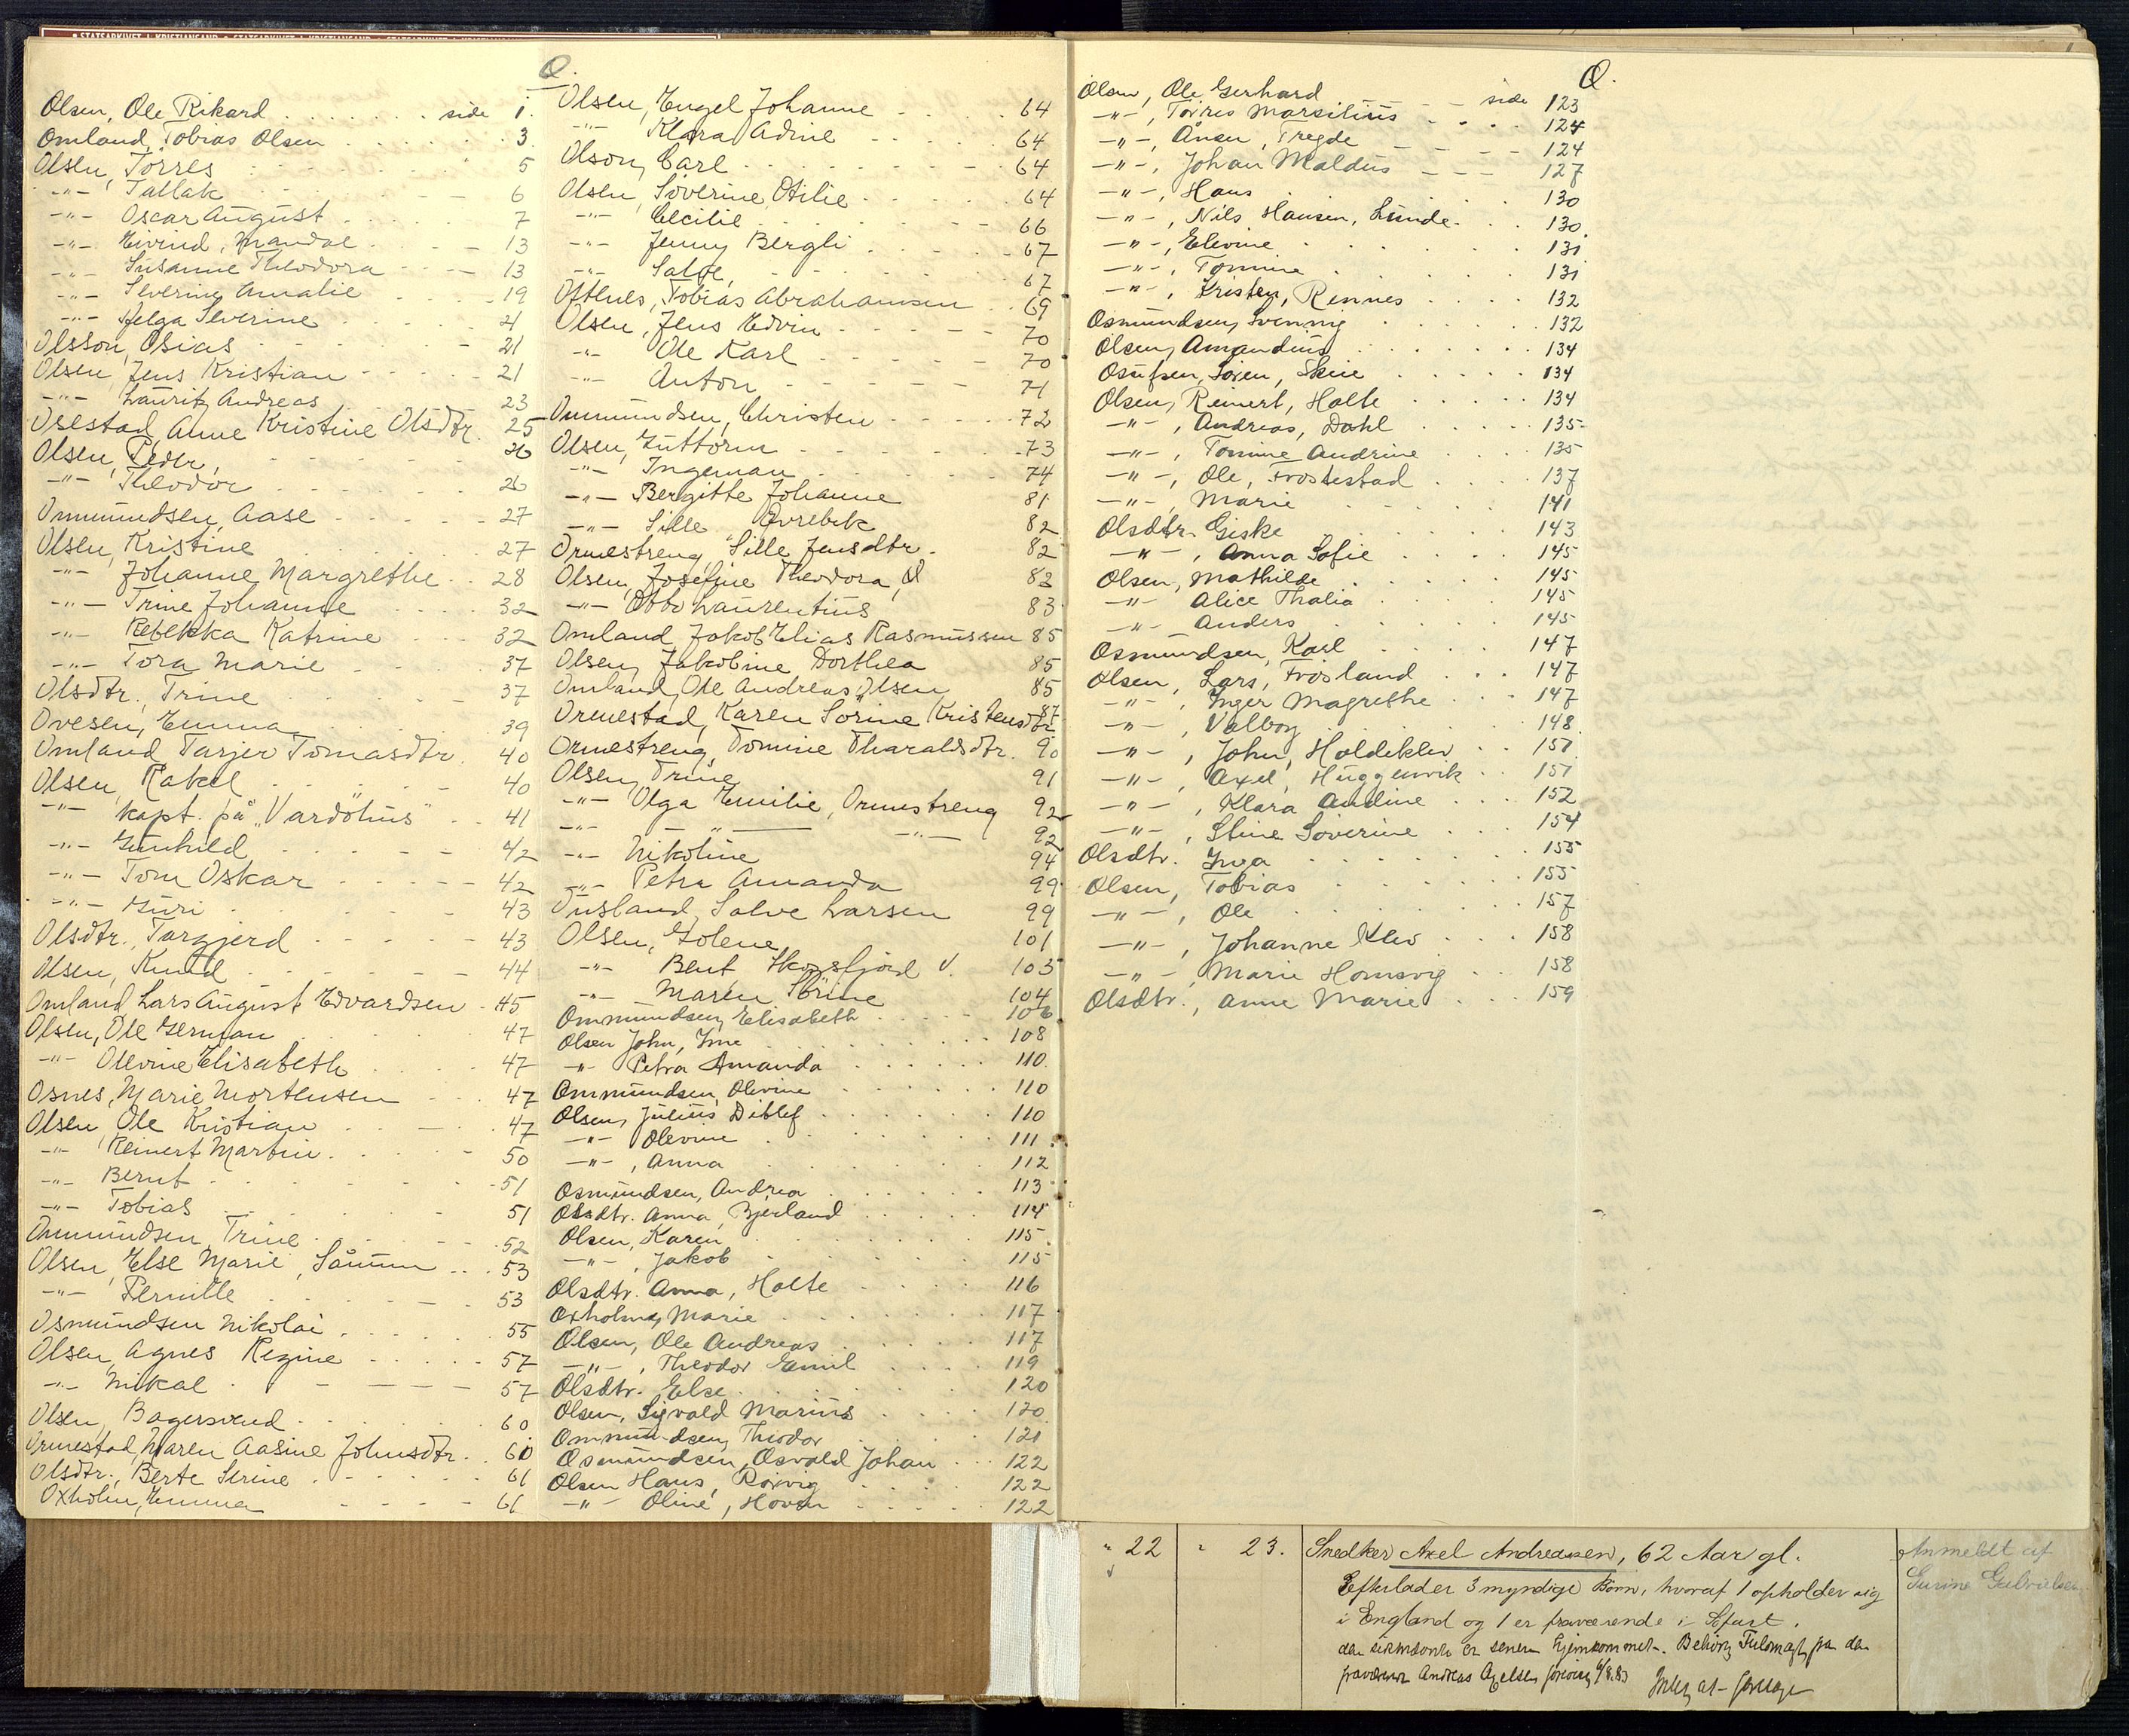 O.
Olsen, Ole Rikard . . . . . . . side 1.
Omland, Tobias Olsen . . . . . 3
Olsen, Torres . . . . . 5
-"- Tallak . . . . 6
-"- Oscar August . . . . 7
-"- Eivind, Mandal . . . 13
-"- Susanne Theodora . . . 13
-"- Severine Amalie . . . 19
-"- Helga Severine . . . . 21
Olsson, Osias . . . . 21
Olsen, Jens Kristian . . . . 21
-"- Lauritz Andreas . . . . 23
Orestad, Anne Kristine Olsdtr. 25
Olsen, Peder, . . . . 26
-"- Theodor . . . . 26
Ommundsen, Aase . . . . 27
Olsen, Kristine . . . . 27
-"- Johanne Margrethe . . 28
-"- Trine Johanne . . . . 32
-"- Rebekka Katrine . . . 32
-"- Tora Marie . . . . 37
Olsdtr., Trine . . . . 37
Ovesen, Emma . . . . 39
Omland Tarjer Tomasdtr. 40
Olsen, Rakel . . . . 40
-"- kapt. på "Vardöhus" . . 41
-"- Gunhild . . . . 42
-"- Tom Oskar . . . . 42
-"- Guri . . . . 43
Olsdtr., Targjerd . . . . 43
Olsen, Knud . . . . 44
Omland, Lars August Edvardsen . 45
Olsen, Ole German . . . 47
-"- Olevine Elisabeth . . . 47
Osnes, Marie Mortensen . . . 47
Olsen, Ole Kristian . . . 47
-"- Reinert Martin . . . . 50
-"- Bernt . . . . 51
-"- Tobias . . . . 51
Ommundsen, Trine . . . . 52
Olsen, Else Marie, Sånum . . . 53
-"- Pernille . . . . 53
Osmundsen Nikolai . . . . 55
Olsen, Agnes Regine . . . . 57
-"- Mikal . . . . 57
Olsen, Bagersvend . . . . 60
Ormestad, Maren Aasine Johnsdtr. . 60
Olsdtr., Berte Serine . . . . 61
Oxholm, Emma . . . . 61
Olsen, Engel Johanne . . . . 64
-"- Klara Adine . . . . 64
Olson, Carl . . . . 64
Olsen, Severine Otilie . . . . 64
-"- Cecilie . . . . 66
-"- Jenny Bergli . . . . 67
-"- Salve, . . . . 67
Oftenes, Tobias Abrahamsen . . 69
Olsen, Jens Edvin . . . . 70
-"- Ole Karl . . . . 70
-"- Anton . . . . 71
Ommundsen, Christen . . . . 72
Olsen, Guttorm . . . . 73
-"- Ingeman . . . . 74
-"- Bergitte Johanne 81
-"- Sille Øvrebek 82
Ormestreng, Sille Jensdtr. 82
Olsen, Josefine Theodora, 82
-"- Otto Laurentius 83
Omland, Jakob Elias Rasmussen 85
Olsen, Jakobine Dorthea 85
Omland, Ole Andreas Olsen 85
Ormestad, Karen Sorine Kristensdtr 87
Ormestreng, Tomine Tharaldsdtr. 90
Olsen, Trine 91
-"- Olga Emilie, Ormestreng 92
-"- -"- -"- 92
-"- Nikoline 94
-"- Petra Amanda 99
Øusland, Salve Larsen 99
Olsen, Golene 101
-"- Bent Skogsfjord V. 103
-"- Maren Sörine 104
Ommundsen, Elisabeth . . . . 106
Olsen John, Ime . . . . 108
-"- Petra Amanda . . . . 110
Ommundsen, Olevine . . . . 110
Olsen, Julius Ditlef . . . . 110
-"- Olevine . . . . 111
-"-, Anna . . . . 112
Osmundsen, Andrea . . . . 113
Olsdtr. Anna, Bjerland . . . . 114
Olsen, Karen . . . . 115
-"-, Jakob . . . . 115
Olsdtr. Anna, Holte . . . . 116
Oxholm, Marie . . . . 117
Olsen, Ole Andreas . . . . 117
-"-, Theodor Emil . . . . 119
Olsdtr. Else . . . . 120
Olsen, Sigvald Marius . . . . 120
Ommundsen, Theodor . . . . 121
Osmundsen, Osvald Johan . . . 122
Olsen Hans, Roisvig . . . . 122
-"- Oline, Hoven . . . . 122
O.
Olsen, Ole Gerhard - - side 123
-"-, Torres Marsilius . . . . 124
-"-, Ånsen, Tregde - - - - 124
-"-, Johan Maldus - - - 127
-"-, Hans . . . . 130
-"-, Nils Hansen, Lunde . . . 130
-"-, Elevine . . . . 131
-"-, Tomine . . . . 131
-"-, Kristen, Rennes . . . . 132
Osmundsen, Svenning . . . . 132
Olsen, Amandus . . . . 134
Osufsen, Soren, Skeie . . . . 134
Olsen, Reinert, Holte . . . . 134
-"-, Andreas, Dahl . . . . 135
-"-, Tomine Andrine . . . . 135
-"-, Ole, Frostestad . . . . 137
-"-, Marie . . . . 141
Olsdtr. Giske . . . . 143
-"-, Anna Sofie . . . . 145
Olsen, Mathilde . . . . 145
-"- Alice Thalia . . . . 145
-"- Anders . . . . 145
Osmundsen, Karl . . . . 147
Olsen, Lars, Frösland . . . 147
-"-, Inger Magrethe . . . 147
-"-, Valborg . . . . 148
-"-, John, Holdeklev . . 151
-"-, Axel, Huggenvik . . 151
-"-, Klara Andine . . . 152
-"-, Stine Soverine . . . 154
Olsdtr. Inga . . . . 155
Olsen, Tobias . . . . 155
-"-, Ole . . . . 157
-"-, Johanne Klev . . . 158
-"-, Marie Homsvig . . 158
Olsdtr., Anne Marie . . . 159
" 22 " 23. Snedker Axel Andreassen, 62 Aar gl.
Efterlader 3 myndige Börn, hvoraf 1 opholder sig
i England og 1 er fraværende i Söfart.
Anmeldt af